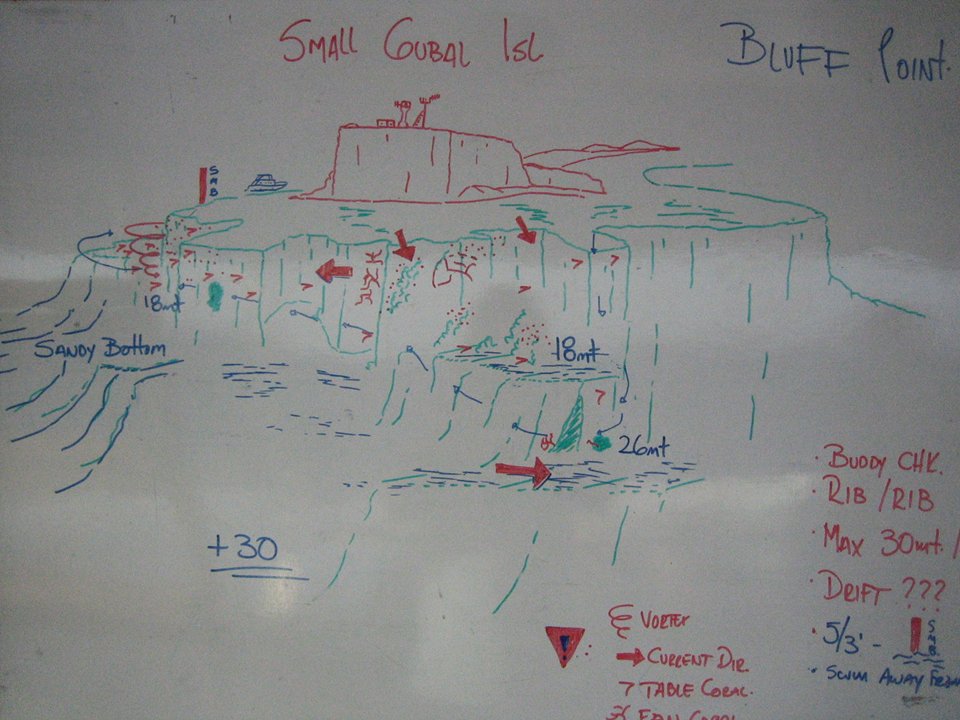 SMALL GUBAL ISL
BLUFF POINT.
SMB
18mt
SANDY BOTTOM
18mt
26mt
+30
· BUDDY CHK.
· RIB / RIB
· MAX 30mt. /
· DRIFT ???
· 5/3' - SMB
· SWIM AWAY FROM
! VORTEX
CURRENT DIR.
TABLE CORAL.
FAN CORAL